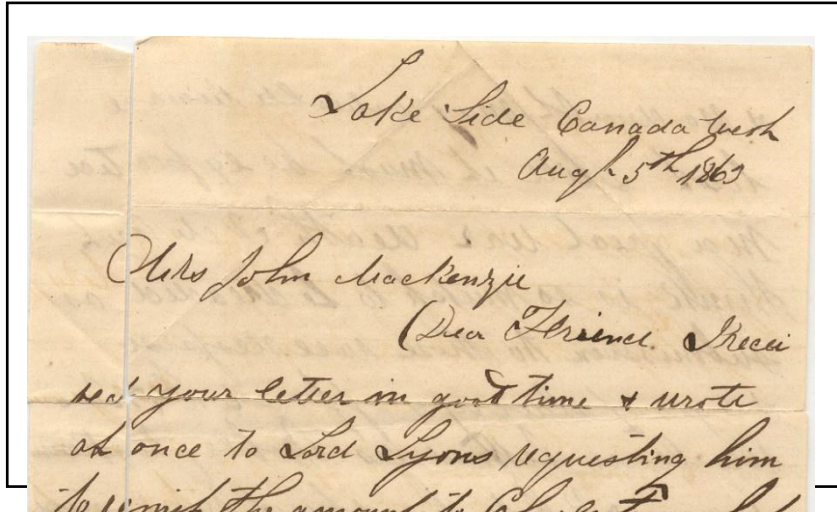 Lake Side Canada West
Augt 5th 1863
Mrs John Mackenzie
Dear Friend. I recei
ved your letter in good time & wrote
at once to Lord Lyons requesting him
to remit the amount to